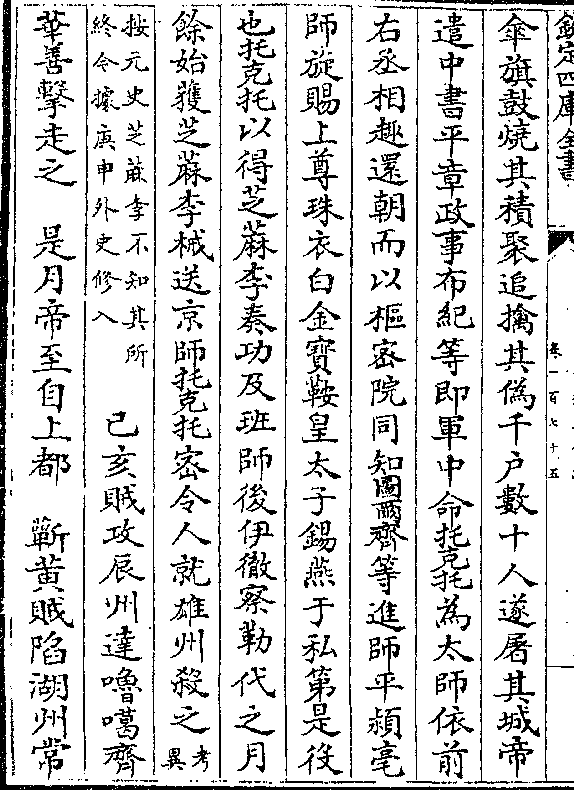 欽定四庫全書
卷一百七十五
傘旗鼓燒其積聚追擒其偽千户數十人遂屠其城帝
遣中書平章政事布紀等即軍中命托克托為太師依前
右丞相趣還朝而以樞密院同知圖爾齊等進師平潁亳
師旋賜上尊珠衣白金寶鞍皇太子錫燕于私第是役
也托克托以得芝蔴李奏功及班師後伊徹察勒代之月
餘始獲芝蔴李械送京師托克托密令人就雄州殺之考
異
按元史芝蔴李不知其所
終今據庚申外史修入
己亥賊攻辰州達嚕噶齊
華善擊走之 是月帝至自上都 蘄黃賊陷湖州常